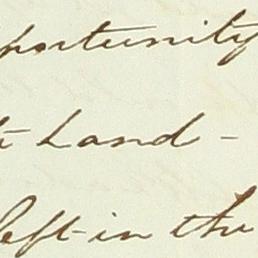 pportunity
to Land -
left in the